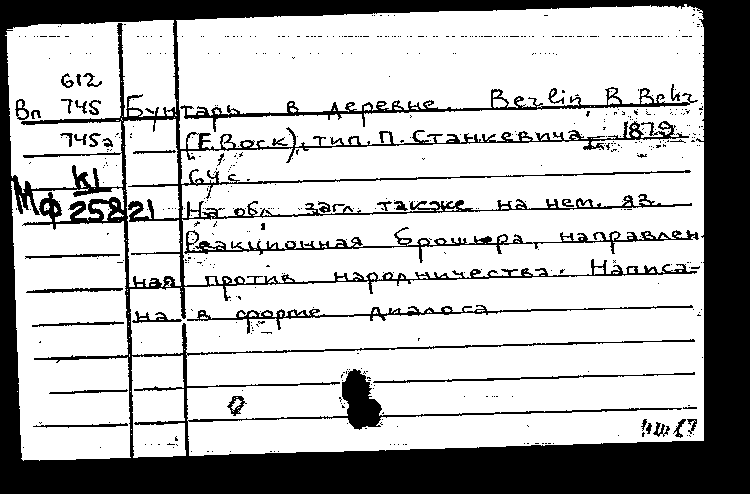 612
Вп 745 Бунтарь в деревне. Berlin, B. Behr
745а (E. Bock), тип. П. Станкевича, 1879.
К1 64 с.
МФ 258 21 На обл. загл. также на нем. яз.
Реакционная брошюра, направлен-
ная против народничества. Написа-
на в форме диалога